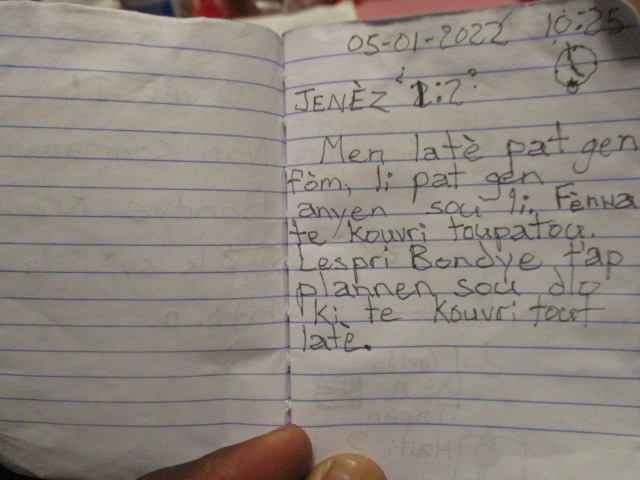 05-01-2022 10:25
JENÈZ 1:2
Men latè pat gen
fòm, li pat gen
anyen sou li. Fènwa
te kouvri toupatou.
Lespri Bondye t'ap
plannen sou dlo
ki te kouvri tout
latè.
Haiti